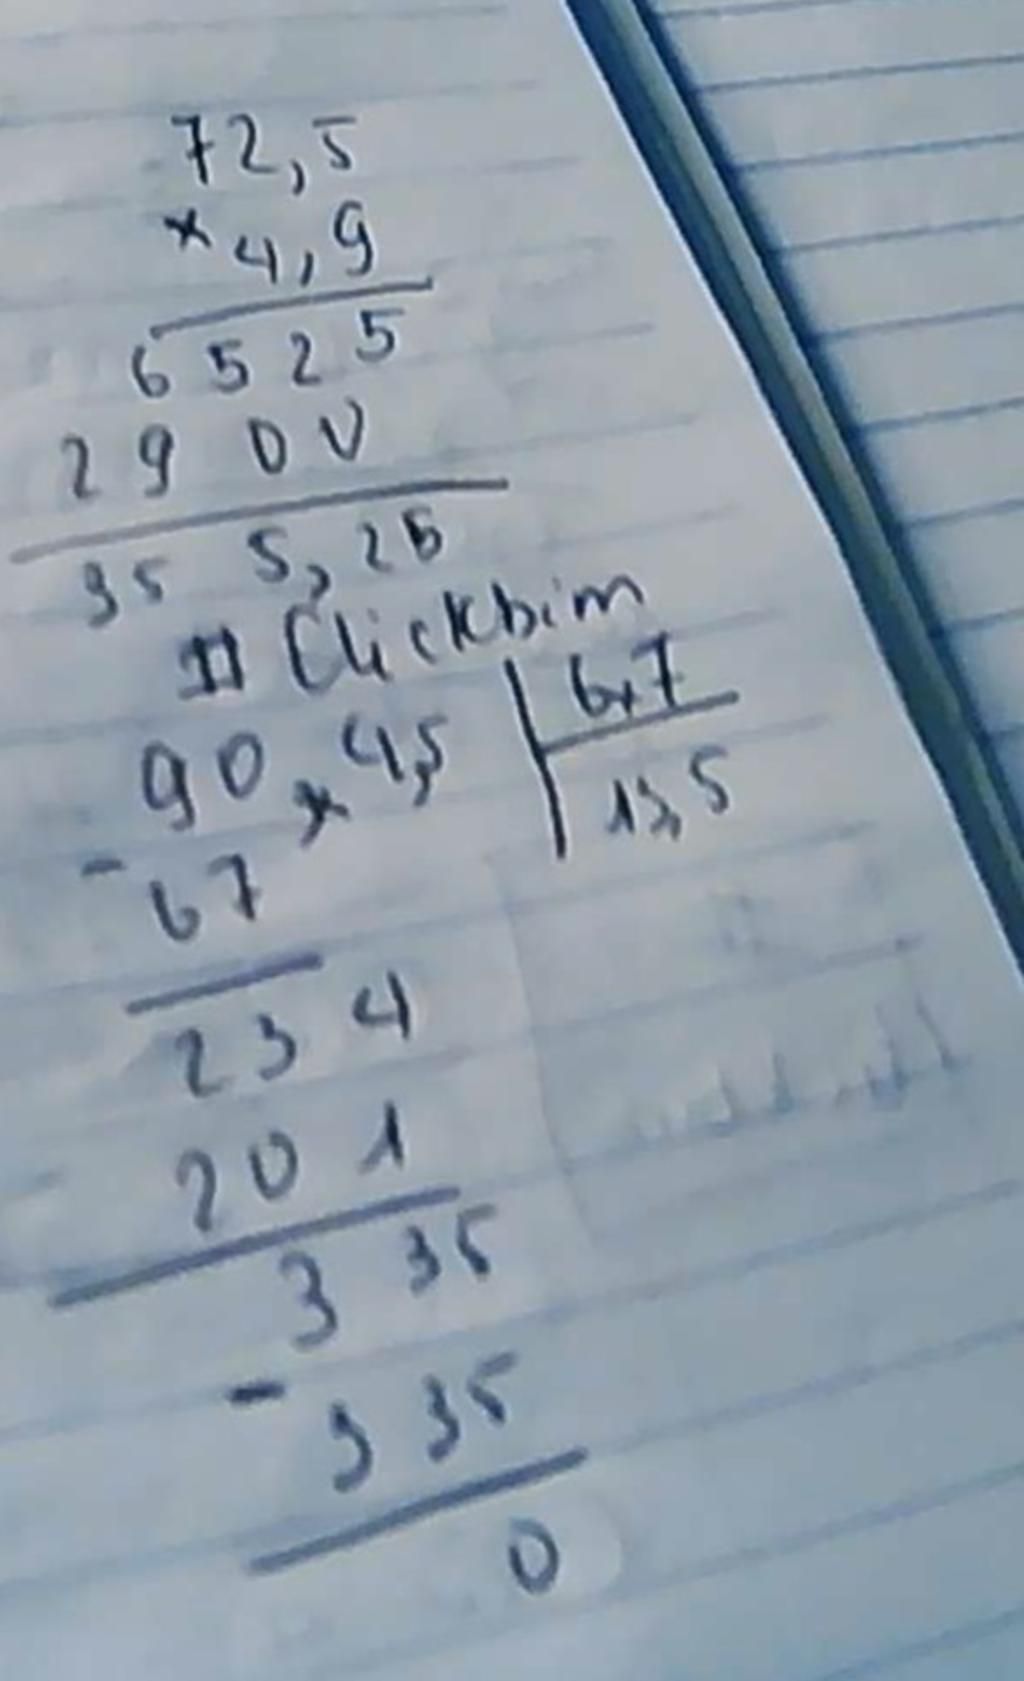 72,5
× 4,9
6 5 2 5
2 9 0 0
35 5,25
# Clickbim
90,4,5 | 6,7
- 67 13,5
23 4
20 1
3 35
- 3 35
0